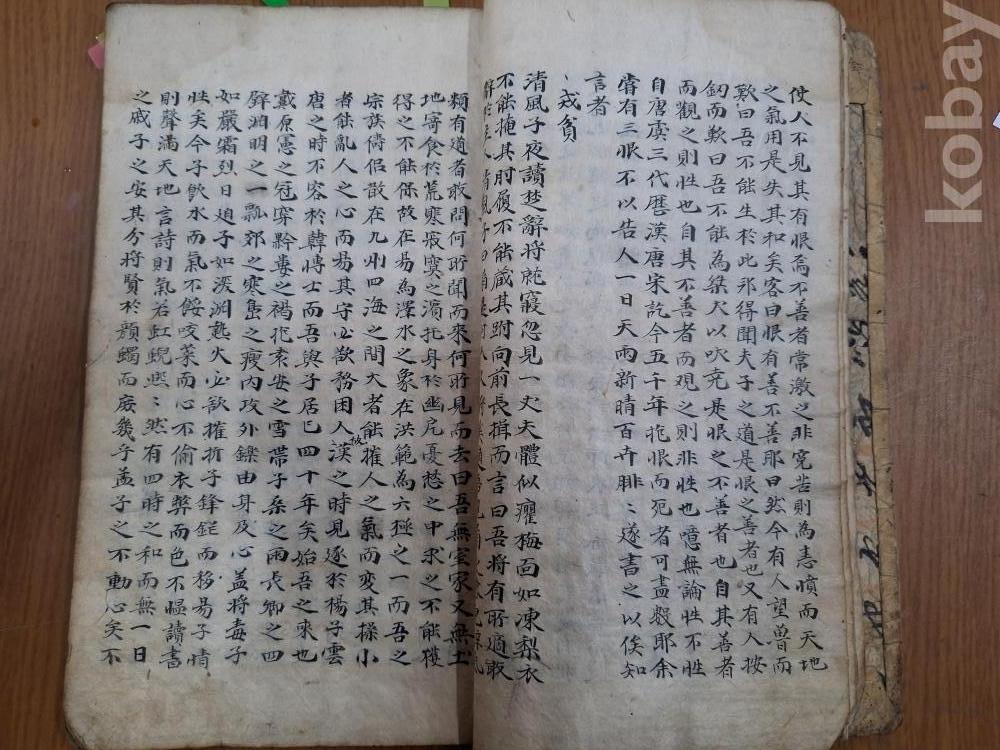 使人不見其有恨焉不善者常激於非寃皆則為恚憤而天地
之氣用是失其和矣客曰恨有善不善耶曰然今有人望魯而
歎曰吾不能生於此那得聞夫子之道是恨之善者也又有人按
釰而歎曰吾不能為桀犬以吠堯是恨之不善者也自其善者
而觀之則性也自其不善者而觀之則非性也噫無論性不性
自唐虞三代曆漢唐宋訖今五千年抱恨而死者可盡數耶余
嘗有三恨不以告人一日天雨新晴百卉腓〻遂書之以俟知
言者
戒貧
清風子夜讀楚辭將就寢忽見一丈夫體似癯梅面如凍梨衣
不能掩其肘履不能藏其跗向前長揖而言曰吾將有所適敢
類有道者敢問何所聞而來何所見而去曰吾無室家又無土
地寄食於荒寒寂寞之濱托身於幽戹憂愁之中求之不能獲
得之不能保故在易為澤水之象在洪範為六極之一而吾之
宗族儔侶散在九州四海之間大者能摧人之氣而變其操小
者能亂人之心而易其守必欲務困人故漢之時見逐於楊子雲
唐之時不容於韓博士而吾與子居已四十年矣始吾之來也
戴原憲之冠穿黔婁之褐挹袁安之雪帶子桑之雨長卿之四
壁淵明之一瓢郊之寒島之瘦內攻外鑠由身及心盖將毒子
如嚴霜烈日迫子如深淵熱火必欲摧折子鋒鋩而移易子情
性矣今子飮水而氣不餒咬菜而心不偷衣弊而色不慍讀書
則聲滿天地言詩則氣若虹蜺熙〻然有四時之和而無一日
之戚子之安其分將賢於顔蠋而庶幾乎孟子之不動心矣不
kobay